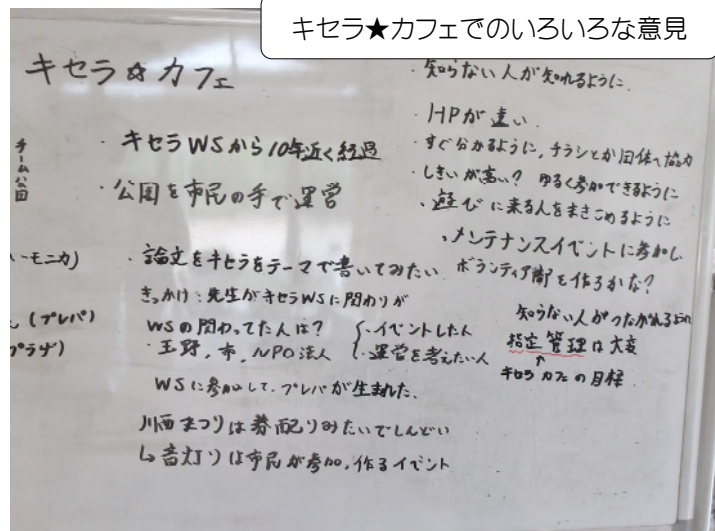 キセラ★カフェでのいろいろな意見
キセラ☆カフェ
チーム公園
・キセラWSから10年近く経過
・公園を市民の手で運営
モニカ)
・論文をキセラをテーマで書いてみたい
きっかけ:先生がキセラWSに関わりが
(プレパ)
プラザ)
WSの関わってた人は?
・イベントした人
・玉野,市,NPO法人
・運営を考えたい人
WSに参加して,プレパが生まれた.
川西まつりは券配りみたいでしんどい
↳音灯りは市民が参加,作るイベント
・知らない人が知れるように.
・HPが遠い.
・すぐ分かるように,チラシとか団体へ協力
・しきいが高い? ゆるく参加できるように
・遊びに来る人をまきこめるように
・メンテナンスイベントに参加し
ボランティア部を作ろかな?
知らない人がつながれるように
指定管理は大変
↑
キセラカフェの目標